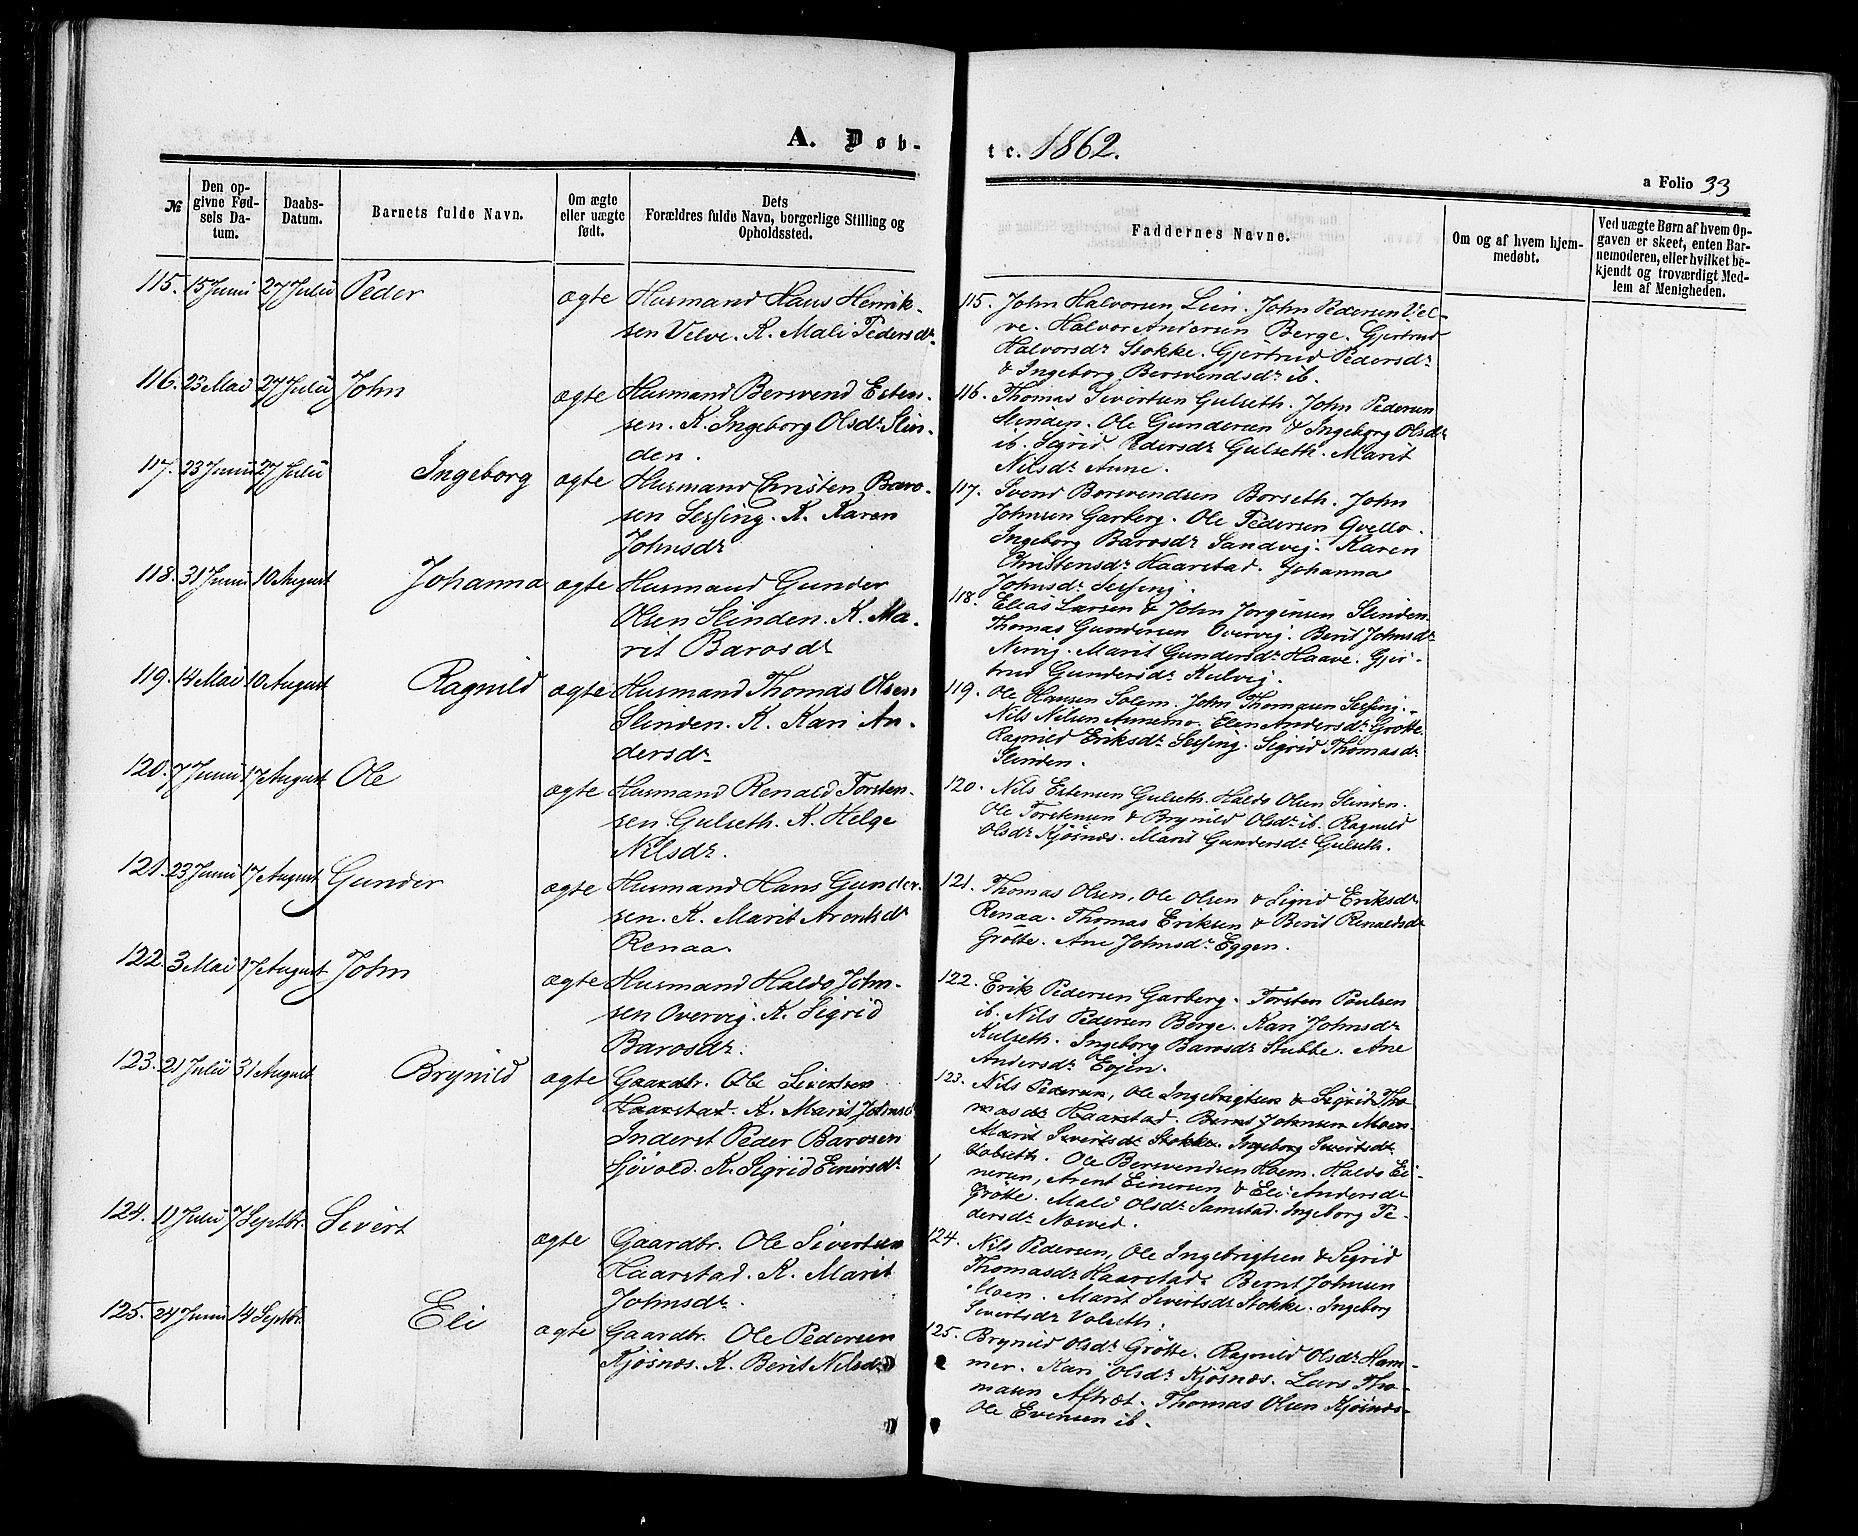 A. Døb-
№
Den op-
givne Fød-
sels Da-
tum.
Daabs-
Datum.
Barnets fulde Navn.
Om ægte
eller uægte
født.
Dets
Forældres fulde Navn, borgerlige Stilling og
Opholdssted.
115. 15 Juni 27 Julii Peder ægte Husmand Hans Henrik-
sen Velve. K. Mali Pedersdr
116. 23 Mai 27 Julii John ægte Husmand Bersvend Esten-
sen. K. Ingeborg Olsdr Slin-
den.
117. 23 Junii 27 Julii Ingeborg ægte Husmand Christen Baro-
sen Sessing. K. Karen
Johnsdr
118. 31 Junii 10 August Johanna ægte Husmand Gunder
Olsen Slinden. K. Ma-
rit Barosdr
119. 14 Mai 10 August Ragnild ægte Husmand Thomas Olsen
Slinden. K. Kari An-
dersdr
120. 7 Junii 17 August Ole ægte Husmand Renald Torsten-
sen Gulseth. K. Helge
Nilsdr.
121. 23 Junii 17 August Gunder ægte Husmand Hans Gunder-
sen. K. Marit Arontsdr
Renaa.
122. 3 Mai 17 August John ægte Husmand Haldo John-
sen Overvig. K. Sigrid
Barosdr.
123. 21 Julii 31 August Brynild ægte Gaardbr. Ole Sivertsen
Haarstad. K. Marit Johnsd
Inderst Peder Barosen
Sjøvold. K. Sigrid Einersdr
124. 11 Julii 7 Septbr. Sivert ægte Gaardbr. Ole Sivertsen
Haarstad. K. Marit
Johnsdr.
125. 24 Junii 14 Septbr. Eli ægte Gaardbr. Ole Pedersen
Kjøsnæs. K. Berit Nilsdr
te. 1862.
a Folio 33
Faddernes Navne.
Om og af hvem hjem-
medøbt.
Ved uægte Børn af hvem Op-
gaven er skeet, enten Bar-
nemoderen, eller hvilket be-
kjendt og troværdigt Med-
lem af Menigheden.
115. John Halvorsen Lein. John Pedersen Vel-
ve. Halvor Andersen Berge. Gjertrud
Halvorsdr Stokke. Gjertrud Pedersdr
& Ingeborg Bersvendsdr ib.
116. Thomas Sivertsen Gulseth. John Pedersen
Slinden. Ole Gundersen & Ingeborg Olsdr
ib. Sigrid Pedersdr Gulseth. Marit
Nilsdr Aune.
117. Svend Borsvendsen Borseth. John
Johnsen Garberg. Ole Pedersen Qvello.
Ingeborg Barosdr Sandvig. Karen
Christensdr Haarstad. Johanna
Johnsdr Sessing.
118. Elias Larsen & John Jorgensen Slinden.
Thomas Gundersen Overvig. Berit Johnsdr
Nervig. Marit Gundersdr Haave. Gjer-
trud Gundersdr Kulvig.
119. Ole Hansen Solem. John Thomasen Sessing.
Nils Nilsen Aunemo. Elen Andersdr Grøtte.
Ragnild Eriksdr Sessing. Sigrid Thomasdr
Slinden.
120. Nils Estensen Gulseth. Haldo Olsen Slinden.
Ole Torstensen & Brynild Olsdr ib. Ragnild
Olsdr Kjøsnæs. Marit Gundersdr Gulseth.
121. Thomas Olsen, Ole Olsen & Sigrid Eriksdr
Renaa. Thomas Eriksen & Berit Renaldsdr
Grøtte. Ane Johnsdr Eggen.
122. Erik Pedersen Garberg. Torsten Poulsen
ib. Nils Pedersen Borge. Kari Johnsdr
Kulseth. Ingeborg Barosdr Stubbe. Ane
Andersdr Evjen.
123. Nils Pedersen, Ole Ingebrigtsen & Sigrid Tho-
masdr Haarstad. Bernt Johnsen Moen.
Marit Sivertsdr Stokke. Ingeborg Sivertsdr
Volseth. Ole Bersvendsen Hoem. Haldo Ei-
nersen, Arent Einersen & Eli Andersdr
Grøtte. Mali Olsdr Samstad. Ingeborg Pe-
dersdr Næsved.
124. Nils Pedersen, Ole Ingebrigtsen & Sigrid
Thomasdr Haarstad. Bernt Johnsen
Moen. Marit Sivertsdr Stokke. Ingeborg
Sivertsdr Volseth.
125. Brynild Olsdr Grøtte. Ragnild Olsdr Ham-
mer. Kari Olsdr Kjøsnæs. Lars Tho-
masen Aftræt. Thomas Olsen Kjøsnæs
Ole Evensen ib.